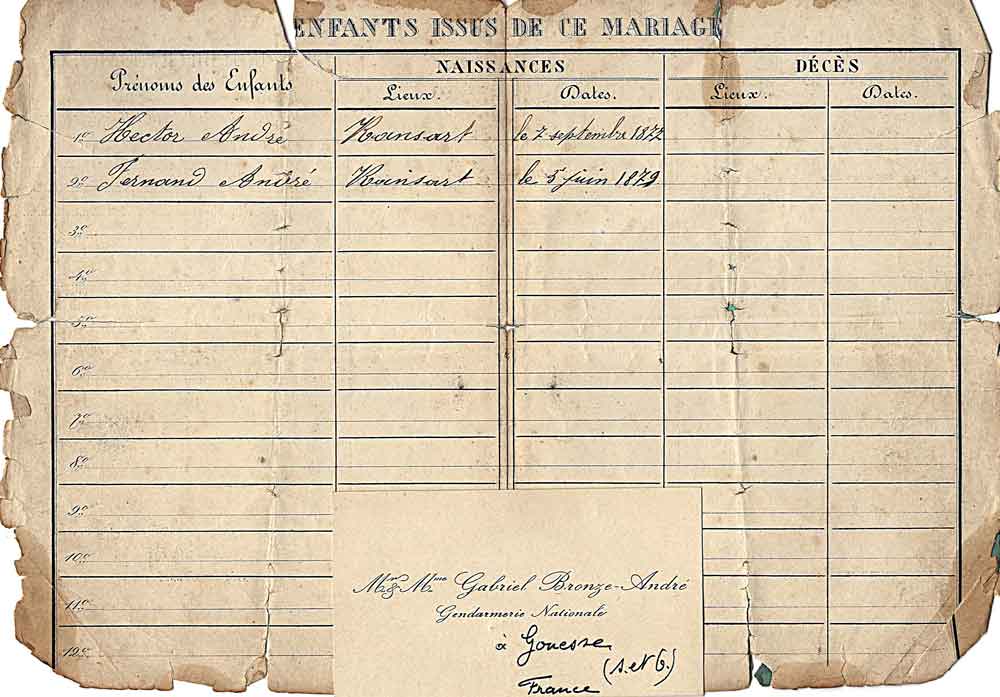 ENFANTS ISSUS DE CE MARIAGE
Prénoms des Enfants
NAISSANCES
DÉCÈS
Lieux.
Dates.
Lieux.
Dates.
1º Hector André Ransart le 7 septembre 1872
2º Fernand André Ransart le 5 juin 1879
3º
4º
5º
6º
7º
8º
9º
10º
11º
12º
Mr & Mme Gabriel Bronze-André
Gendarmerie Nationale
à Gonesse
(S. et O.)
France